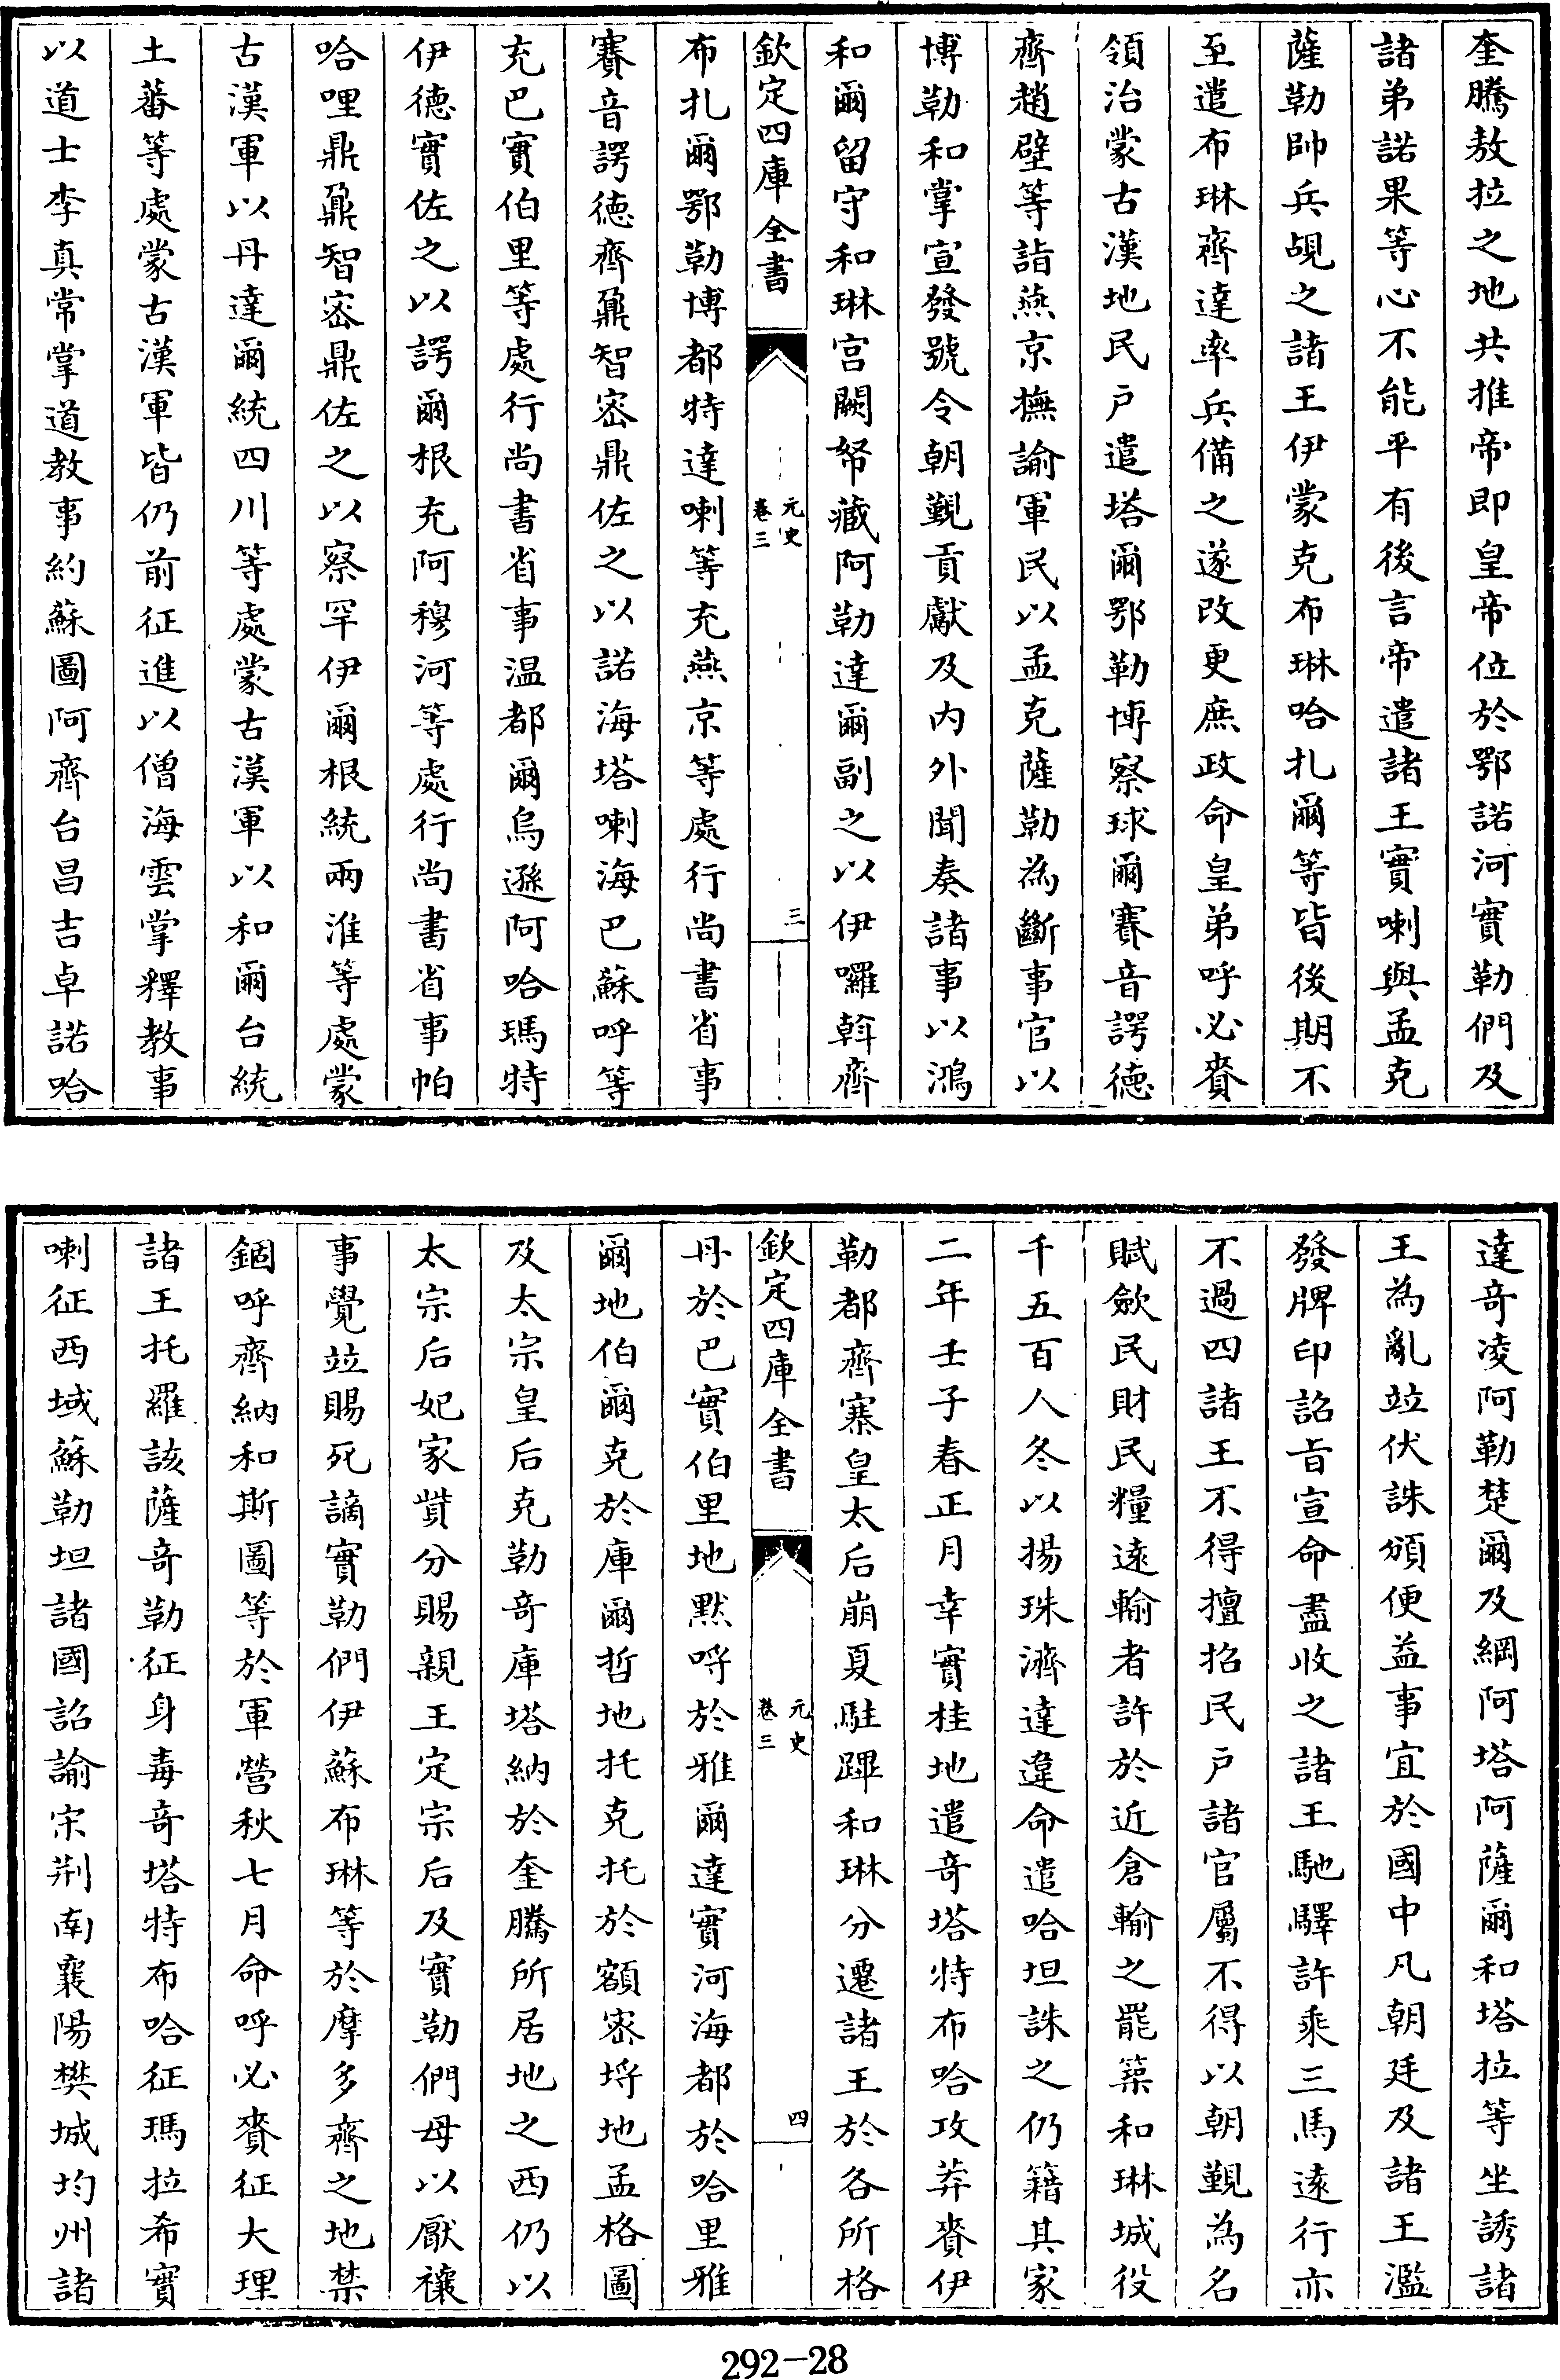 奎騰敖拉之地共推帝即皇帝位於鄂諾河實勒們及
諸弟諾果等心不能平有後言帝遣諸王實喇與孟克
薩勒帥兵覘之諸王伊蒙克布琳哈扎爾等皆後期不
至遣布琳齊達率兵備之遂改更庶政命皇弟呼必賚
領治蒙古漢地民户遣塔爾鄂勒博察球爾賽音諤德
齊趙璧等詣燕京撫諭軍民以孟克薩勒為斷事官以
博勒和掌宣發號令朝覲貢獻及内外聞奏諸事以鴻
和爾留守和琳宫闕帑藏阿勒達爾副之以伊囉斡齊
欽定四庫全書
元史
卷三
三
布扎爾鄂勒博都特達喇等充燕京等處行尚書省事
賽音諤德齊鼐智密鼎佐之以諾海塔喇海巴蘇呼等
充巴實伯里等處行尚書省事温都爾烏遜阿哈瑪特
伊德實佐之以諤爾根充阿穆河等處行尚書省事帕
哈哩鼎鼐智密鼎佐之以察罕伊爾根統兩淮等處蒙
古漢軍以丹達爾統四川等處蒙古漢軍以和爾台統
土蕃等處蒙古漢軍皆仍前征進以僧海雲掌釋教事
以道士李真常掌道教事約蘇圖阿齊台昌吉卓諾哈
達奇凌阿勒楚爾及綱阿塔阿薩爾和塔拉等坐誘諸
王為亂竝伏誅頒便益事宜於國中凡朝廷及諸王濫
發牌印詔旨宣命盡收之諸王馳驛許乘三馬遠行亦
不過四諸王不得擅招民户諸官屬不得以朝覲為名
賦斂民財民糧遠輸者許於近倉輸之罷築和琳城役
千五百人冬以揚珠濟達違命遣哈坦誅之仍籍其家
二年壬子春正月幸實桂地遣奇塔特布哈攻莽賚伊
勒都齊寨皇太后崩夏駐蹕和琳分遷諸王於各所格
欽定四庫全書
元史
卷三
四
丹於巴實伯里地默哷於雅爾達實河海都於哈里雅
爾地伯爾克於庫爾哲地托克托於額密埒地孟格圖
及太宗皇后克勒奇庫塔納於奎騰所居地之西仍以
太宗后妃家貲分賜親王定宗后及實勒們母以厭禳
事覺竝賜死謫實勒們伊蘇布琳等於摩多齊之地禁
錮呼齊納和斯圖等於軍營秋七月命呼必賚征大理
諸王托羅該薩奇勒征身毒奇塔特布哈征瑪拉希實
喇征西域蘇勒坦諸國詔諭宋荆南襄陽樊城均州諸
292-28